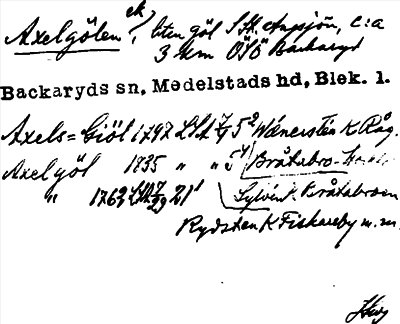 Axelgölen ek, liten göl S St. Angsjön, c:a
3 km ÖSÖ Backaryd
Backaryds sn, Medelstads hd, Blek. l.
Axels=Giöl 1797 LSA 5² Wänersten K Råg.
Axelgöl 1835 " " 5⁴ Bråtabro-
" 1762 LSA 21¹ Sylvén K Bråtabroen
Rydsten K Fiskareby m.m.